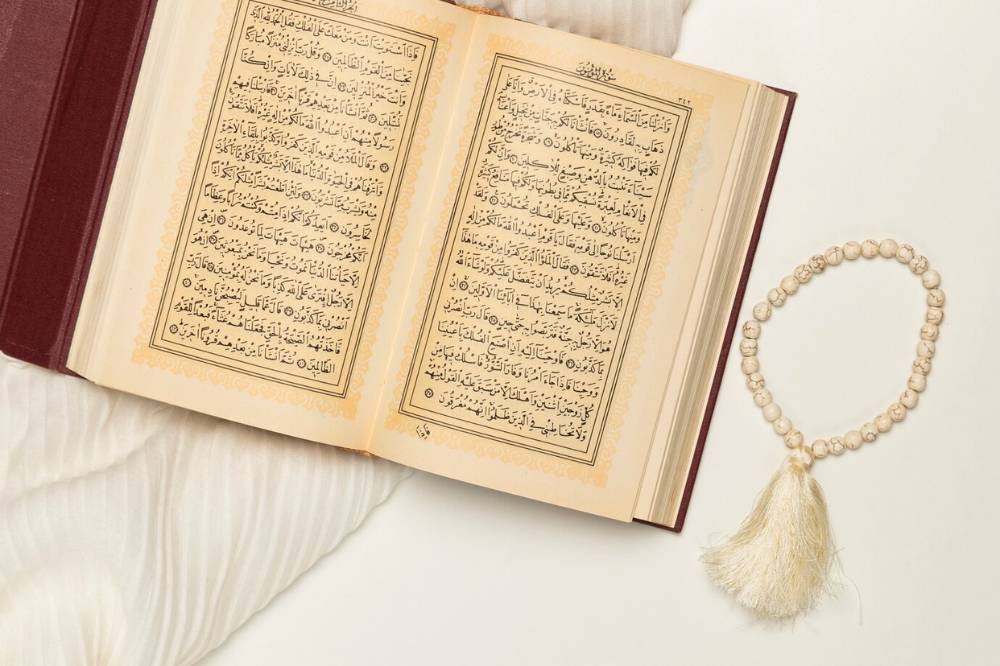 سورة المؤمنون
٣٤٢
وَأَنْزَلْنَا مِنَ السَّمَاءِ مَاءً بِقَدَرٍ فَأَسْكَنَّاهُ فِي الْأَرْضِ وَإِنَّا عَلَى
ذَهَابٍ بِهِ لَقَادِرُونَ ۝ فَأَنْشَأْنَا لَكُمْ بِهِ جَنَّاتٍ مِنْ نَخِيلٍ وَأَعْنَابٍ
لَكُمْ فِيهَا فَوَاكِهُ كَثِيرَةٌ وَمِنْهَا تَأْكُلُونَ ۝ وَشَجَرَةً تَخْرُجُ مِنْ طُورِ
سَيْنَاءَ تَنْبُتُ بِالدُّهْنِ وَصِبْغٍ لِلْآكِلِينَ ۝ وَإِنَّ لَكُمْ
فِي الْأَنْعَامِ لَعِبْرَةً نُسْقِيكُمْ مِمَّا فِي بُطُونِهَا وَلَكُمْ فِيهَا مَنَافِعُ كَثِيرَةٌ
وَمِنْهَا تَأْكُلُونَ ۝ وَعَلَيْهَا وَعَلَى الْفُلْكِ تُحْمَلُونَ ۝ وَلَقَدْ
أَرْسَلْنَا نُوحًا إِلَى قَوْمِهِ فَقَالَ يَا قَوْمِ اعْبُدُوا اللَّهَ مَا لَكُمْ مِنْ إِلَهٍ
غَيْرُهُ أَفَلَا تَتَّقُونَ ۝ فَقَالَ الْمَلَأُ الَّذِينَ كَفَرُوا مِنْ قَوْمِهِ مَا هَذَا
إِلَّا بَشَرٌ مِثْلُكُمْ يُرِيدُ أَنْ يَتَفَضَّلَ عَلَيْكُمْ وَلَوْ شَاءَ اللَّهُ
لَأَنْزَلَ مَلَائِكَةً مَا سَمِعْنَا بِهَذَا فِي آبَائِنَا الْأَوَّلِينَ ۝ إِنْ
هُوَ إِلَّا رَجُلٌ بِهِ جِنَّةٌ فَتَرَبَّصُوا بِهِ حَتَّى حِينٍ ۝ قَالَ رَبِّ انْصُرْنِي
بِمَا كَذَّبُونِ ۝ فَأَوْحَيْنَا إِلَيْهِ أَنِ اصْنَعِ الْفُلْكَ بِأَعْيُنِنَا
وَوَحْيِنَا فَإِذَا جَاءَ أَمْرُنَا وَفَارَ التَّنُّورُ فَاسْلُكْ فِيهَا مِنْ
كُلٍّ زَوْجَيْنِ اثْنَيْنِ وَأَهْلَكَ إِلَّا مَنْ سَبَقَ عَلَيْهِ الْقَوْلُ مِنْهُمْ
وَلَا تُخَاطِبْنِي فِي الَّذِينَ ظَلَمُوا إِنَّهُمْ مُغْرَقُونَ ۝
فَإِذَا
فَإِذَا اسْتَوَيْتَ أَنْتَ وَمَنْ مَعَكَ عَلَى الْفُلْكِ فَقُلِ الْحَمْدُ لِلَّهِ الَّذِي
نَجَّانَا مِنَ الْقَوْمِ الظَّالِمِينَ ۝ وَقُلْ رَبِّ أَنْزِلْنِي مُنْزَلًا مُبَارَكًا
وَأَنْتَ خَيْرُ الْمُنْزِلِينَ ۝ إِنَّ فِي ذَلِكَ لَآيَاتٍ وَإِنْ كُنَّا
لَمُبْتَلِينَ ۝ ثُمَّ أَنْشَأْنَا مِنْ بَعْدِهِمْ قَرْنًا آخَرِينَ ۝ فَأَرْسَلْنَا فِيهِمْ
رَسُولًا مِنْهُمْ أَنِ اعْبُدُوا اللَّهَ مَا لَكُمْ مِنْ إِلَهٍ غَيْرُهُ أَفَلَا تَتَّقُونَ
۝ وَقَالَ الْمَلَأُ مِنْ قَوْمِهِ الَّذِينَ كَفَرُوا وَكَذَّبُوا بِلِقَاءِ الْآخِرَةِ
وَأَتْرَفْنَاهُمْ فِي الْحَيَاةِ الدُّنْيَا مَا هَذَا إِلَّا بَشَرٌ مِثْلُكُمْ يَأْكُلُ مِمَّا تَأْكُلُونَ
مِنْهُ وَيَشْرَبُ مِمَّا تَشْرَبُونَ ۝ وَلَئِنْ أَطَعْتُمْ بَشَرًا مِثْلَكُمْ إِنَّكُمْ إِذًا
لَخَاسِرُونَ ۝ أَيَعِدُكُمْ أَنَّكُمْ إِذَا مِتُّمْ وَكُنْتُمْ تُرَابًا وَعِظَامًا
أَنَّكُمْ مُخْرَجُونَ ۝ هَيْهَاتَ هَيْهَاتَ لِمَا تُوعَدُونَ ۝ إِنْ هِيَ
إِلَّا حَيَاتُنَا الدُّنْيَا نَمُوتُ وَنَحْيَا وَمَا نَحْنُ بِمَبْعُوثِينَ ۝ إِنْ هُوَ
إِلَّا رَجُلٌ افْتَرَى عَلَى اللَّهِ كَذِبًا وَمَا نَحْنُ لَهُ بِمُؤْمِنِينَ ۝ قَالَ رَبِّ
انْصُرْنِي بِمَا كَذَّبُونِ ۝ قَالَ عَمَّا قَلِيلٍ لَيُصْبِحُنَّ نَادِمِينَ ۝
فَأَخَذَتْهُمُ الصَّيْحَةُ بِالْحَقِّ فَجَعَلْنَاهُمْ غُثَاءً فَبُعْدًا لِلْقَوْمِ
الظَّالِمِينَ ۝ ثُمَّ أَنْشَأْنَا مِنْ بَعْدِهِمْ قُرُونًا آخَرِينَ ۝